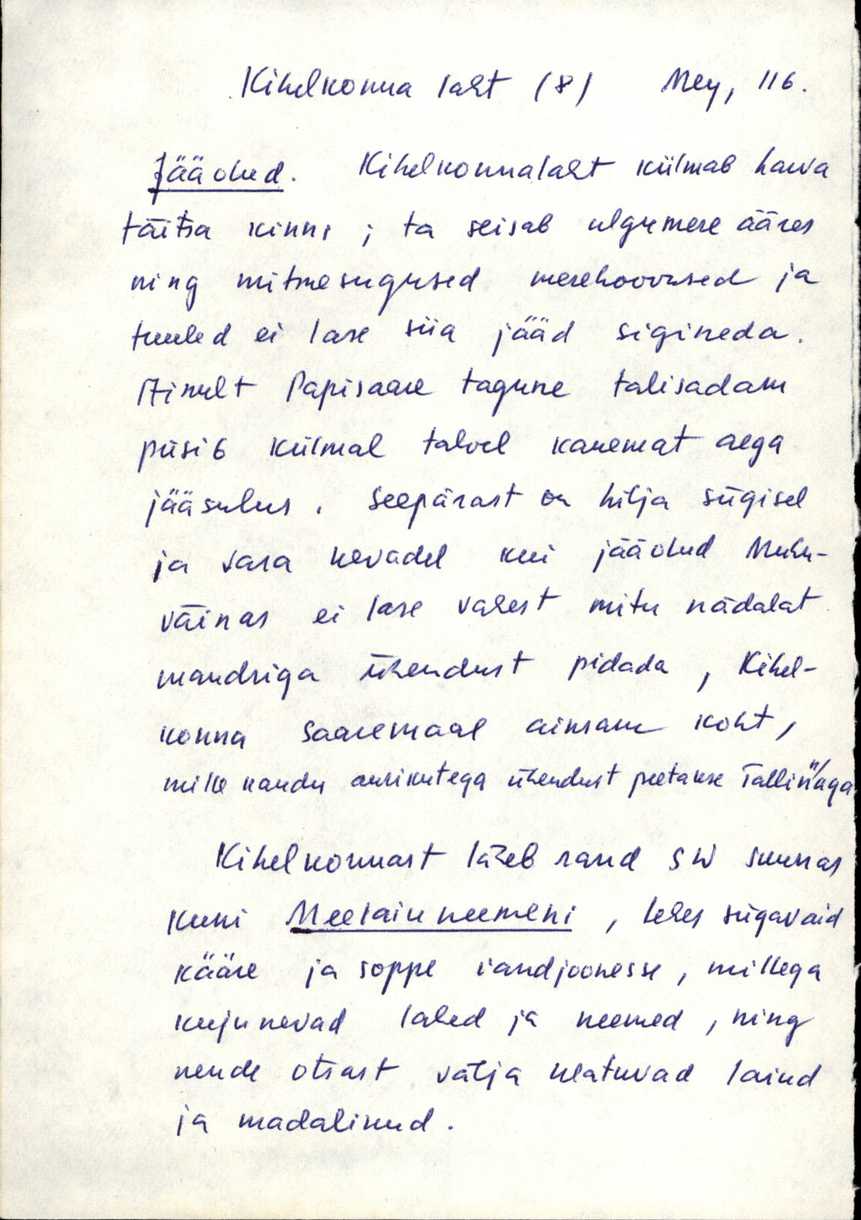 Kihelkonna laht (8) Mey, 116.
Jääolud. Kihelkonnalaht külmab harva
täitsa kinni ; ta seisab ulgumere ääres
ning mitmesugused merehoovused ja
tuuled ei lase siia jääd sigineda.
Ainult Papisaare tagune talisadam
püsib külmal talvel kauemat aega
jääsulus. Seepärast on hilja sügisel
ja vara kevadel kui jääolud Muhu-
väinas ei lase vahest mitu nädalat
mandriga ühendust pidada, Kihel-
konna Saaremaal ainsam koht,
mille kaudu aurikutega ühendust peetakse Tallinnaga
Kihelkonnast läheb rand SW suunas
kuni Meelaiu neemeni, tehes sügavaid
kääre ja soppe randjoonesse, millega
kujunevad lahed ja neemed, ning
nende otsast välja ulatuvad laiud
ja madalikud.